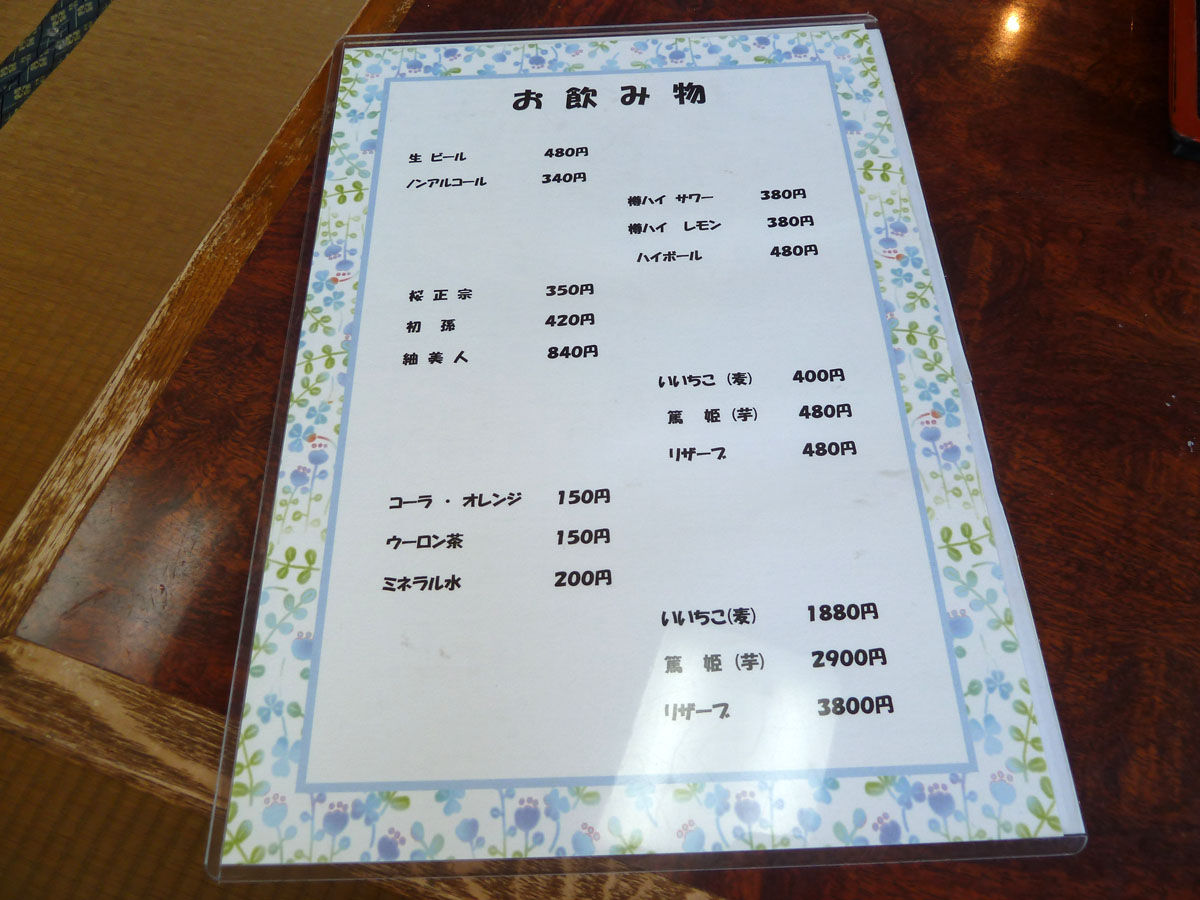 お飲み物
生 ビール 480円
ノンアルコール 340円
樽ハイ サワー 380円
樽ハイ レモン 380円
ハイボール 480円
桜 正 宗 350円
初 孫 420円
紬 美 人 840円
いいちこ (麦) 400円
篤 姫 (芋) 480円
リザーブ 480円
コーラ ・ オレンジ 150円
ウーロン茶 150円
ミネラル水 200円
いいちこ(麦) 1880円
篤 姫 (芋) 2900円
リザーブ 3800円